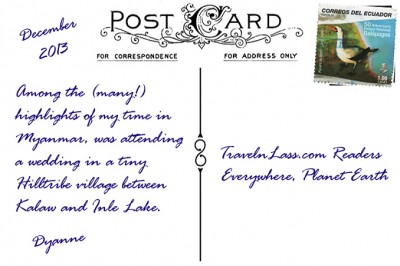 December
2013
POST CARD
FOR CORRESPONDENCE
FOR ADDRESS ONLY
CORREOS DEL ECUADOR
Galápagos
1.00
Among the (many!)
highlights of my time in
Myanmar, was attending
a wedding in a tiny
Hilltribe village between
Kalaw and Inle Lake.
Dyanne
TravelnLass.com Readers
Everywhere, Planet Earth